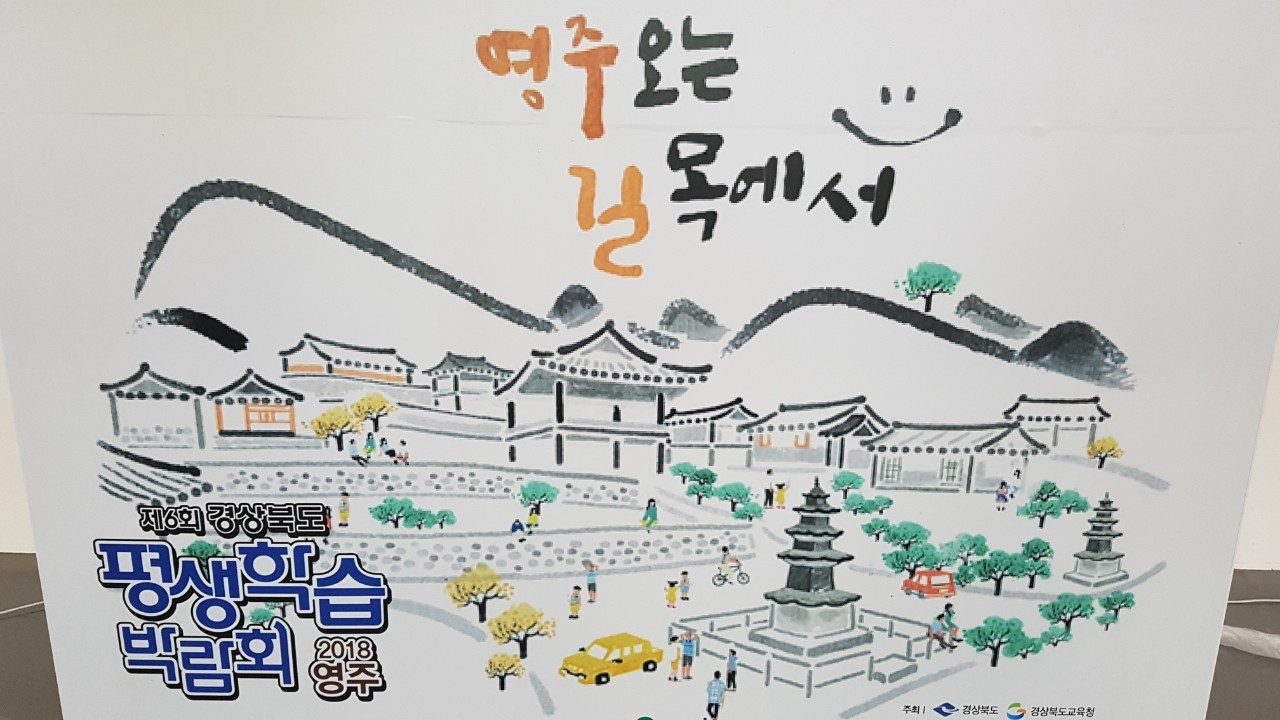 영주 오는
길목에서
제6회 경상북도
평생학습
박람회 2018
영주
주최 | 경상북도 경상북도교육청